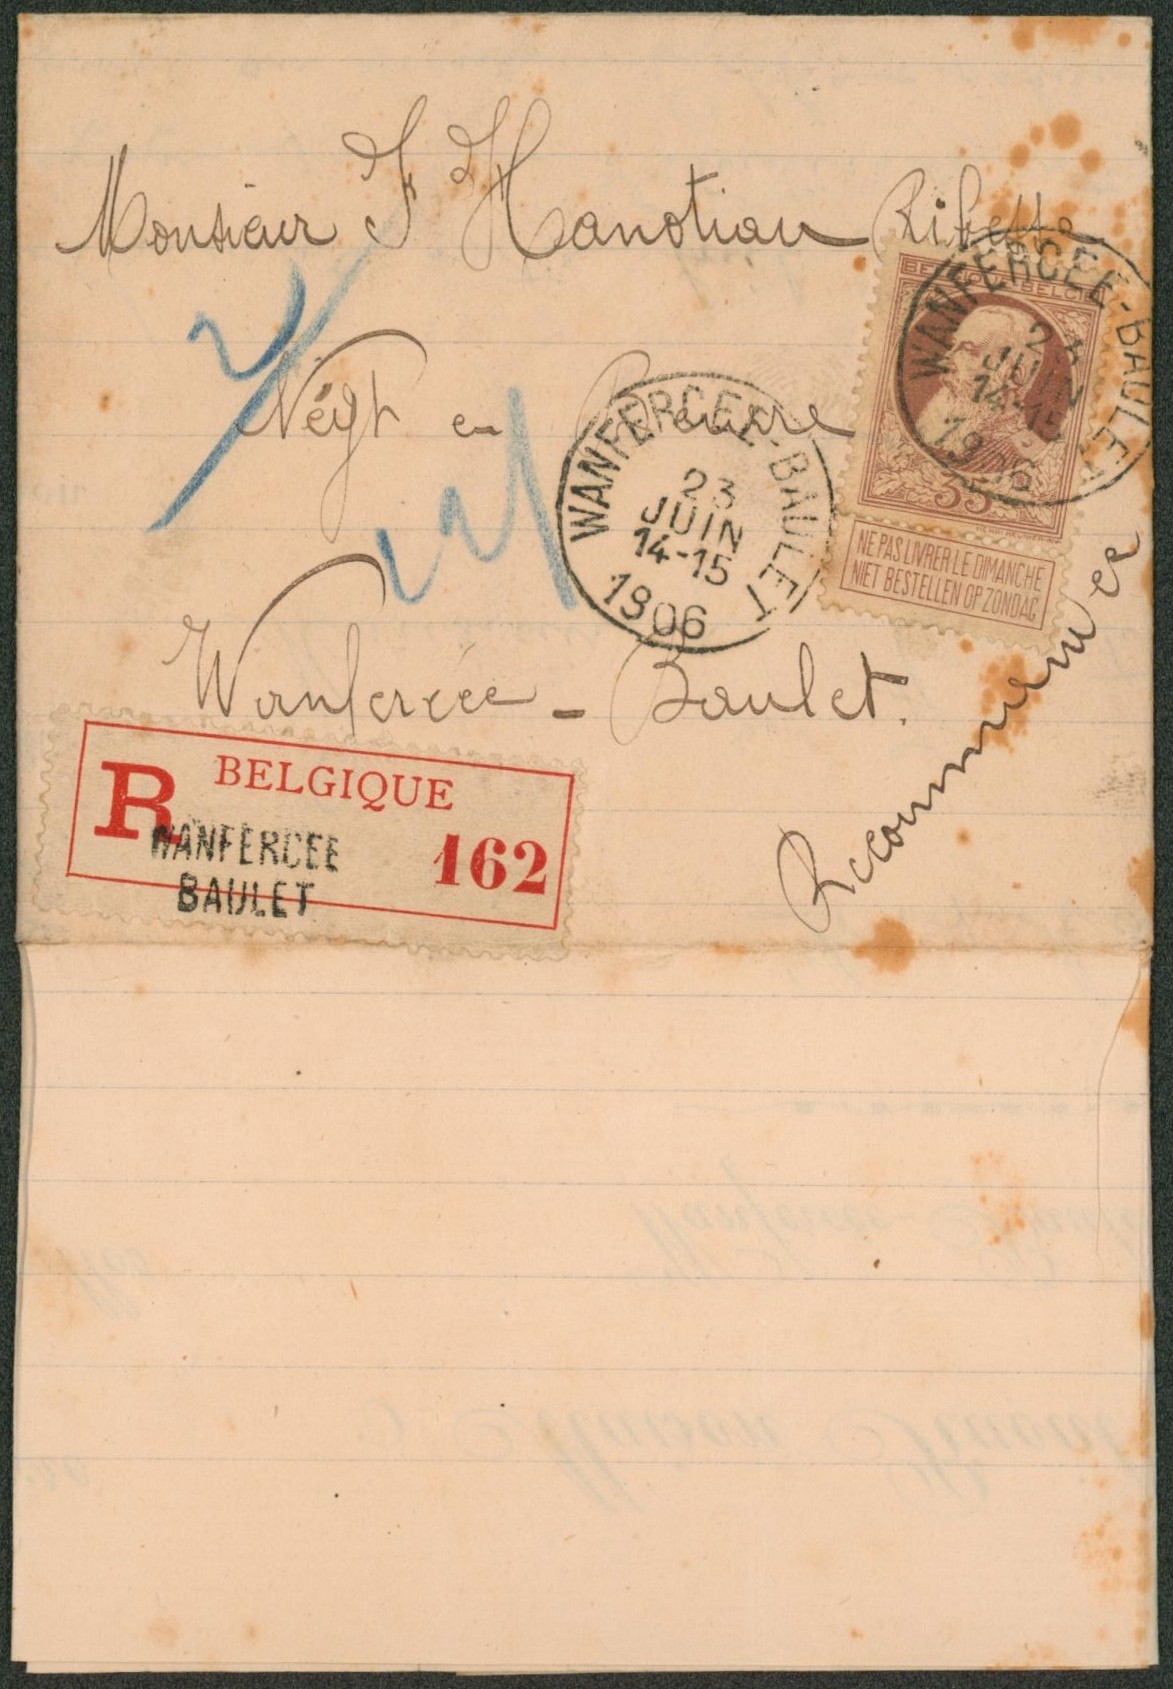 Monsieur F Hanotiau Ribette
BELGIQUE-BELGIË
WANFERCÉE-BAULET
23
JUIN
14-15
1906
35
NE PAS LIVRER LE DIMANCHE
NIET BESTELLEN OP ZONDAG
Négt en Beurre
WANFERCÉE-BAULET
23
JUIN
14-15
1906
Wanfercée - Baulet.
Recommandée
R BELGIQUE
WANFERCEE
BAULET
162